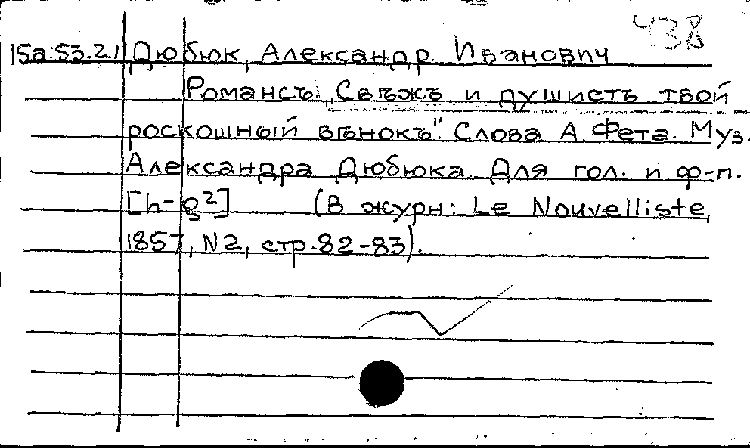 438
15a.53.21 Дюбюк, Александр Иванович
Романсъ: „Свѣжъ и душистъ твой
роскошный вѣнокъ". Слова А. Фета. Муз.
Александра Дюбюка. Для гол. и ф-п.
[h-g²] (В журн: Le Nouvelliste,
1857, N2, стр. 82-83).